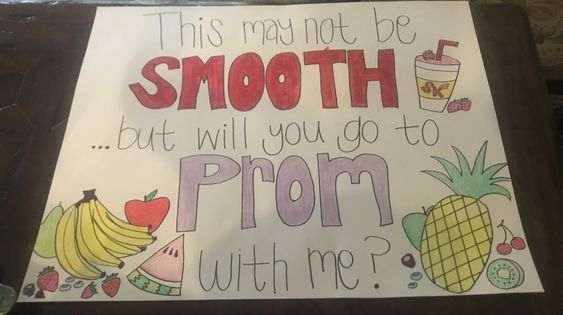 This may not be
SMOOTH
...but will you go to
Prom
with me?
SK